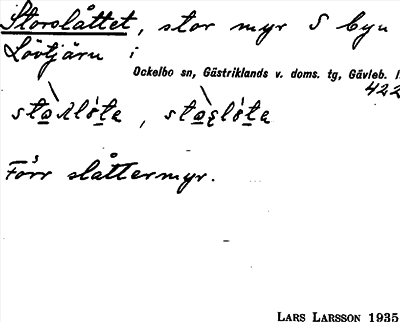 Storslåttet, stor myr S byn
Lövtjärn i
Ockelbo sn, Gästriklands v. doms. tg, Gävleb. l.
422
Förr slåttermyr.
LARS LARSSON 1935